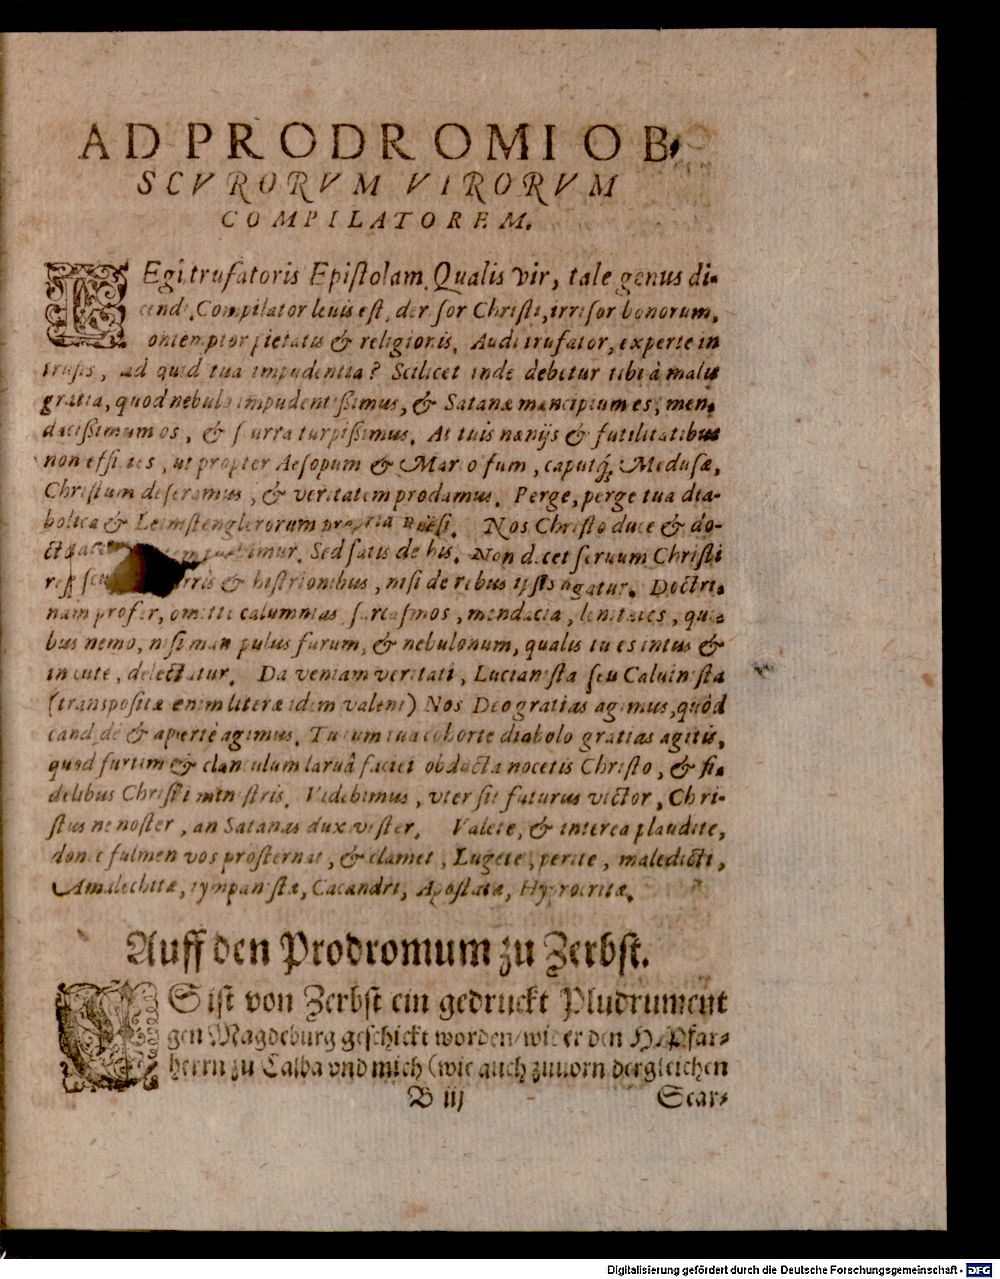 AD PRODROMI OB-
SCVRORVM VIRORVM
COMPILATOREM.
LEgi trufatoris Epistolam. Qualis vir, tale genus di-
cendi. Compilator leuis est, derisor Christi, irrisor bonorum,
contemptor pietatis & religionis. Audi trufator, experte in
trufis, ad quid tua impudentia? Scilicet inde debetur tibi à malis
gratia, quod nebulo impudentißimus, & Satanæ mancipium es, men-
dacißimum os, & scurra turpißimus. At tuis nanijs & futilitatibus
non efficies, ut propter Aesopum & Marcolfum, caputq́; Medusæ,
Christum deseramus, & veritatem prodamus. Perge, perge tua dia-
bolica & Leimstenglerorum propria Poësi. Nos Christo duce & do-
Sed satis de his. Non decet seruum Christi
& histrionibus, nisi de rebus ipsis agatur. Doctri-
nam profer, omitte calumnias, sarcasmos, mendacia, leuitates, qui-
bus nemo, nisi manipulus furum, & nebulonum, qualis tu es intus &
in cute, delectatur. Da veniam veritati, Lucianista seu Caluinista
(transpositæ enim literæ idem valent) Nos Deo gratias agimus, quòd
candidè & apertè agimus. Tu cum tua cohorte diabolo gratias agitis,
quod furtim & clanculum laruâ faciei obducta nocetis Christo, & fi-
delibus Christi ministris. Videbimus, vter sit futurus victor, Chri-
stus ne noster, an Satanas dux vester. Valete, & interea plaudite,
donec fulmen vos prosternat, & clamet, Lugete, perite, maledicti,
Amalechitæ, tympanistæ, Cacandri, Apostatæ, Hypocritæ.
Auff den Prodromum zu Zerbst.
ES ist von Zerbst ein gedruckt Pludrument
gen Magdeburg geschickt worden/ wider den H. Pfar-
herrn zu Calba vnd mich (wie auch zuuorn dergleichen
B iij
Scar-
Digitalisierung gefördert durch die Deutsche Forschungsgemeinschaft - DFG